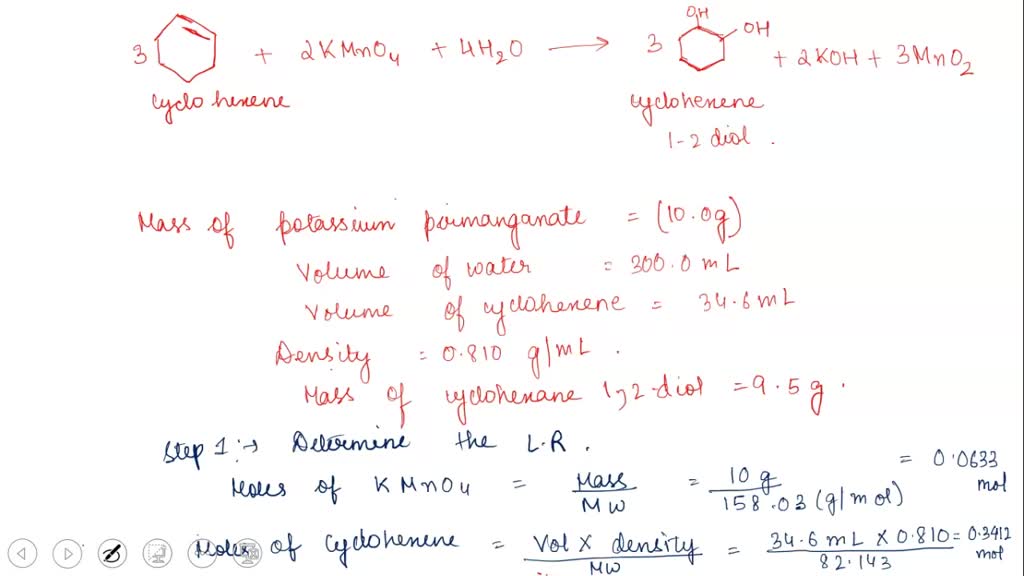 OH
3 + 2KMnO4 + 4H2O → 3 OH + 2KOH + 3MnO2
cyclo hexene
cyclohexene
1-2 diol .
Mass of potassium pormanganate = (10.0g)
Volume of water = 300.0 mL
Volume of cyclohexene = 34.6 mL
Density = 0.810 g/mL .
Mass of cyclohexane 1,2-diol = 9.5 g .
Step 1:→ Determine the L.R .
Moles of KMnO4 = Mass / MW = 10 g / 158.03 (g/mol) = 0.0633 mol
Moles of cyclohexene = Vol X density / MW = 34.6 mL X 0.810 / 82.143 = 0.3412 mol